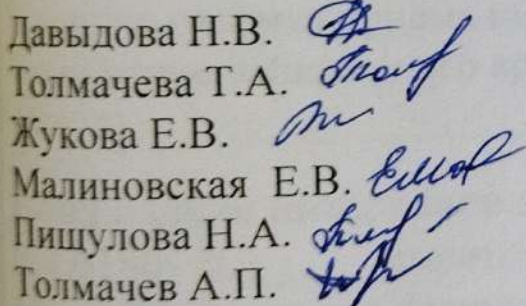 Давыдова Н.В.
Толмачева Т.А.
Жукова Е.В.
Малиновская Е.В.
Пищулова Н.А.
Толмачев А.П.